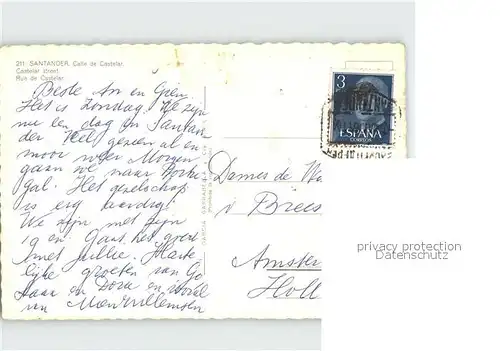 211 SANTANDER. Calle de Castelar
Castelar street
Rue de Castelar
Beste An en Gien.
Het is Zondag. We zijn
nu een dag in Santan
der Veel gezien al en
mooi weer Morgen
gaan we naar Portu
gal. Het gezelschap
is erg aardig!
We zijn met zijn
19 en. Gaat het goed
met jullie. Harte-
lijke groeten van
en Dora en
van
3
ESPAÑA
CORREOS
Dames de
Brees
Amster
Holl
privacy protection
Datenschutz